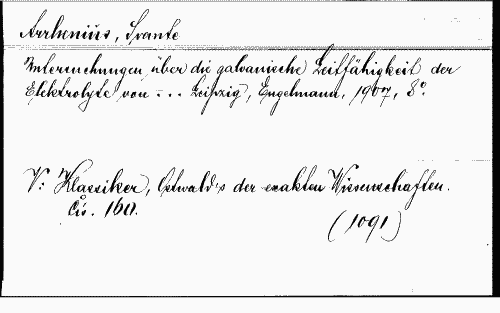 Arrhenius, Svante
Untersuchungen über die galvanische Leitfähigkeit der
Elektrolyte von - ... Leipzig, Engelmann, 1907, 8°.
V: Klassiker, Ostwald's der exakten Wissenschaften.
čís. 160.
(1091)